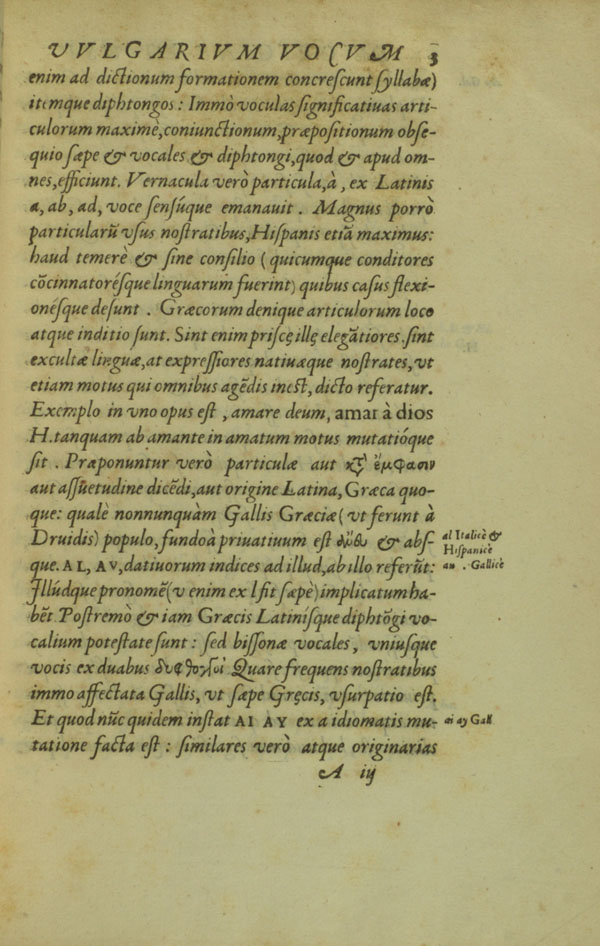 VVLGARIVM VOCVM 3
enim ad dictionum formationem concreſcunt ſyllabæ)
itemque diphtongos: Immò voculas ſignificatiuas arti-
culorum maximè, coniunctionum, præpoſitionum obſe-
quio ſæpe & vocales & diphtongi, quod & apud om-
nes, efficiunt. Vernacula verò particula, à, ex Latinis
a, ab, ad, voce ſenſúque emanauit. Magnus porrò
particularũ vſus noſtratibus, Hiſpanis etiã maximus:
haud temerè & ſine conſilio (quicumque conditores
cõcinnatoréſque linguarum fuerint) quibus caſus flexi-
onéſque deſunt. Græcorum denique articulorum loco
atque inditio ſunt. Sint enim priſcę illę elegãtiores. ſint
excultæ linguæ, at expreſſiores natiuæque noſtrates, vt
etiam motus qui omnibus agẽdis ineſt, dicto referatur.
Exemplo in vno opus eſt, amare deum, amar à dios
H. tanquam ab amante in amatum motus mutatióque
ſit. Præponuntur verò particulæ aut κτ̃ ἐμφασιν
aut aſſuetudine dicẽdi, aut origine Latina, Græca quo-
que: qualè nonnunquàm Gallis Græciæ (vt ferunt à
Druidis) populo, fundo à priuatiuum eſt ἀυθυ & abſ-
que. AL, AV, datiuorum indices ad illud, ab illo referũt:
Illúdque pronomẽ (u enim ex l fit ſæpè) implicatum ha-
bẽt Poſtremò & iam Græcis Latiniſque diphtõgi vo-
calium poteſtate ſunt: ſed biſſonæ vocales, vniuſque
vocis ex duabus Quare frequens noſtratibus
immo affectata Gallis, vt ſæpe Gręcis, vſurpatio eſt.
Et quod nũc quidem inſtat AI AY ex a idiomatis mu-
tatione facta eſt: ſimilares verò atque originarias
A iij
al Italicè &
Hiſpanicè
au. Gallicè
ai ay Gall